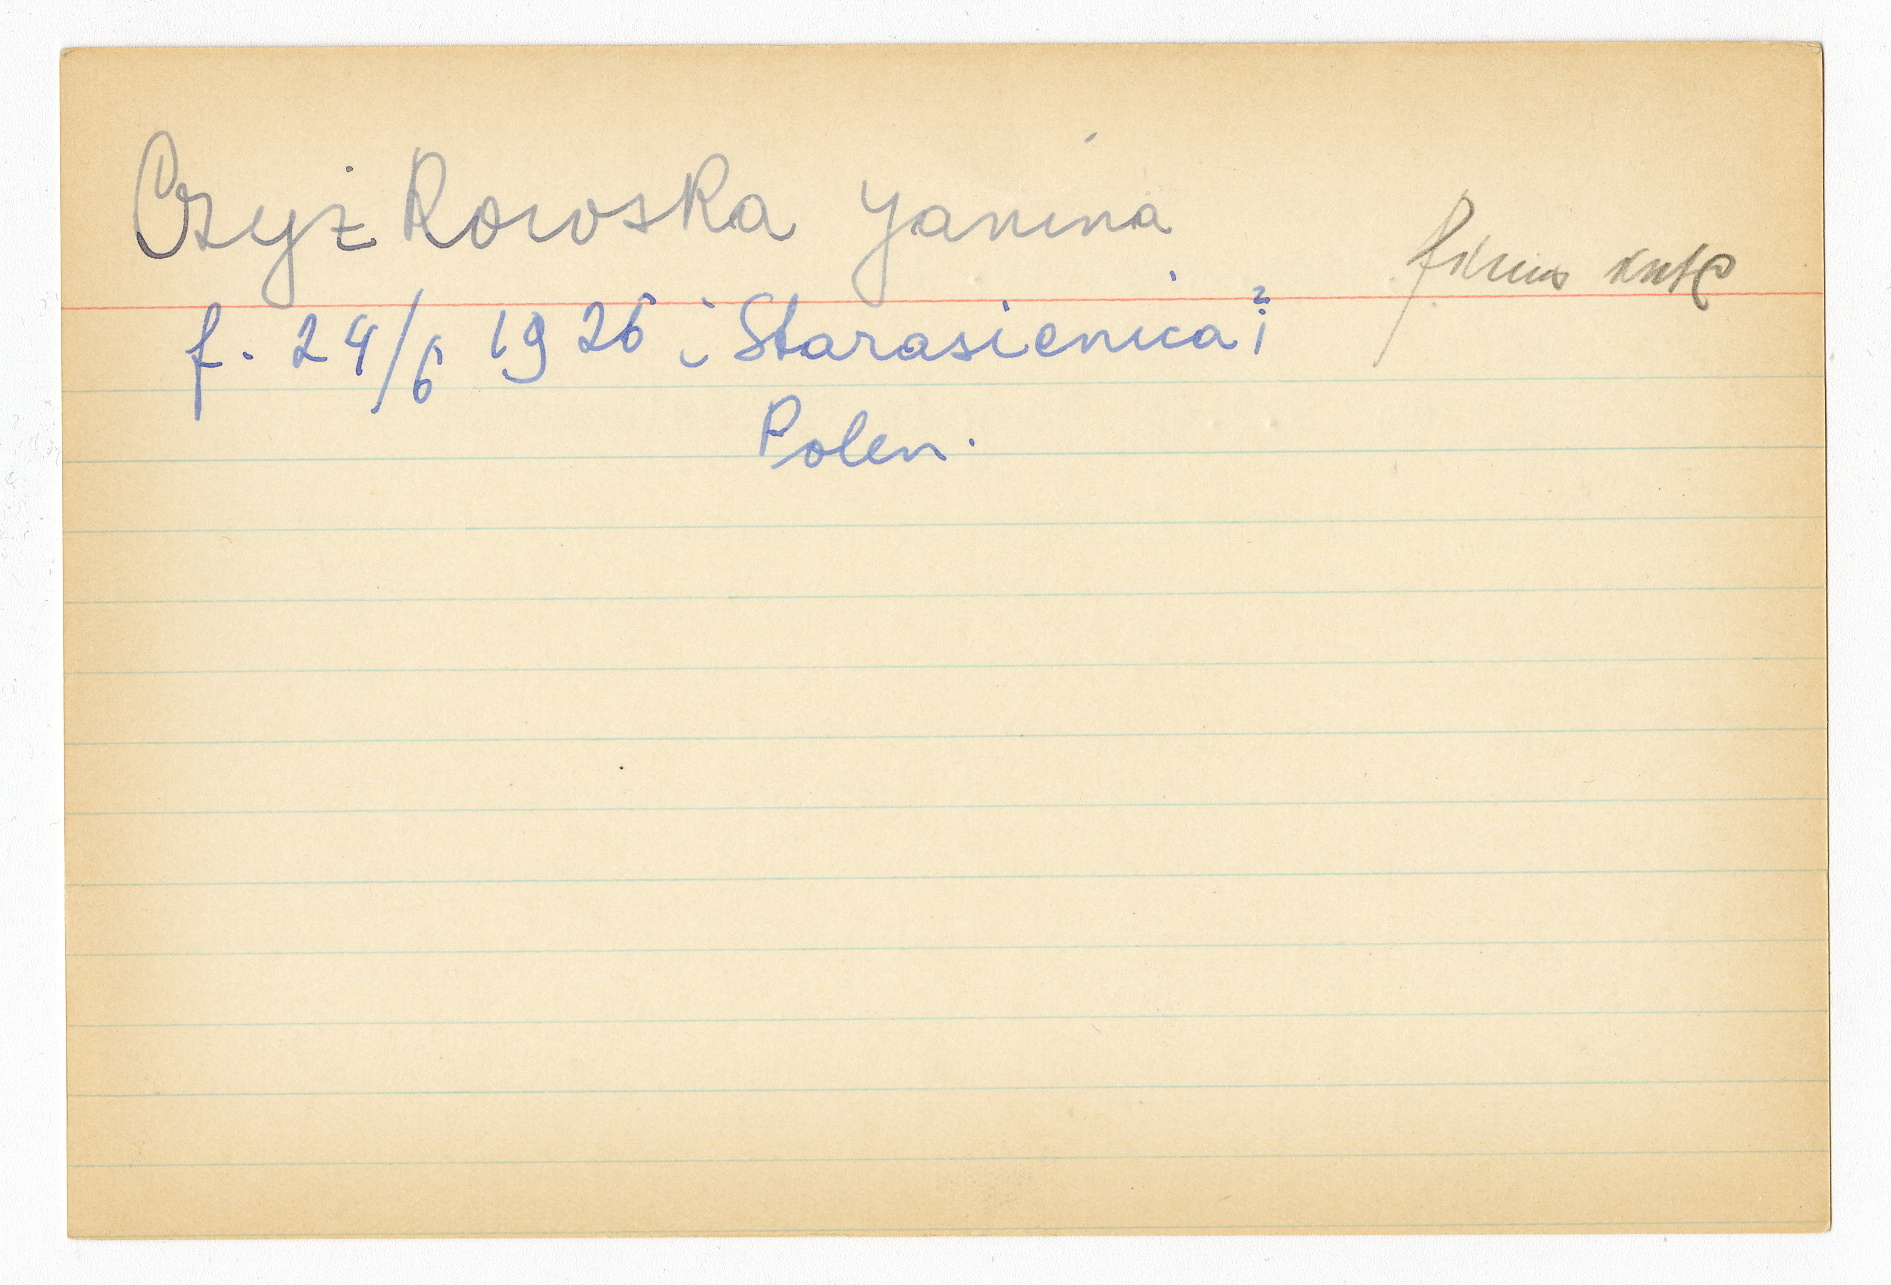 Czyżkowska Janina
finns ink
f. 24/6 1926 i Starasienica i
Polen.